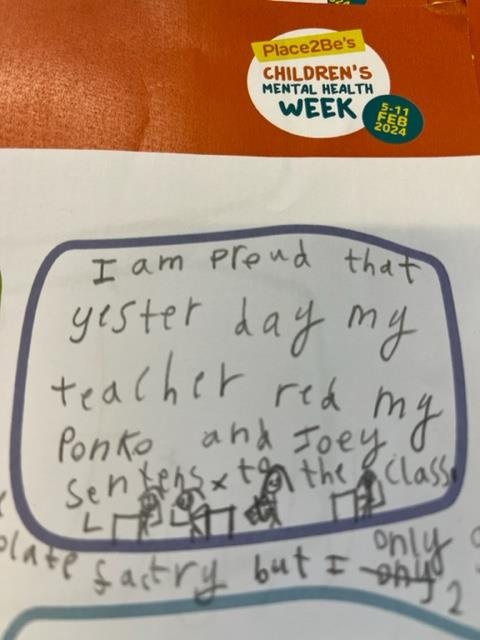 Place2Be's
CHILDREN'S
MENTAL HEALTH
WEEK
5-11
FEB
2024
I am proud that
yester day my
teacher red my
Ponko and Joey
sentens x to the class.
olate factry but I only
2